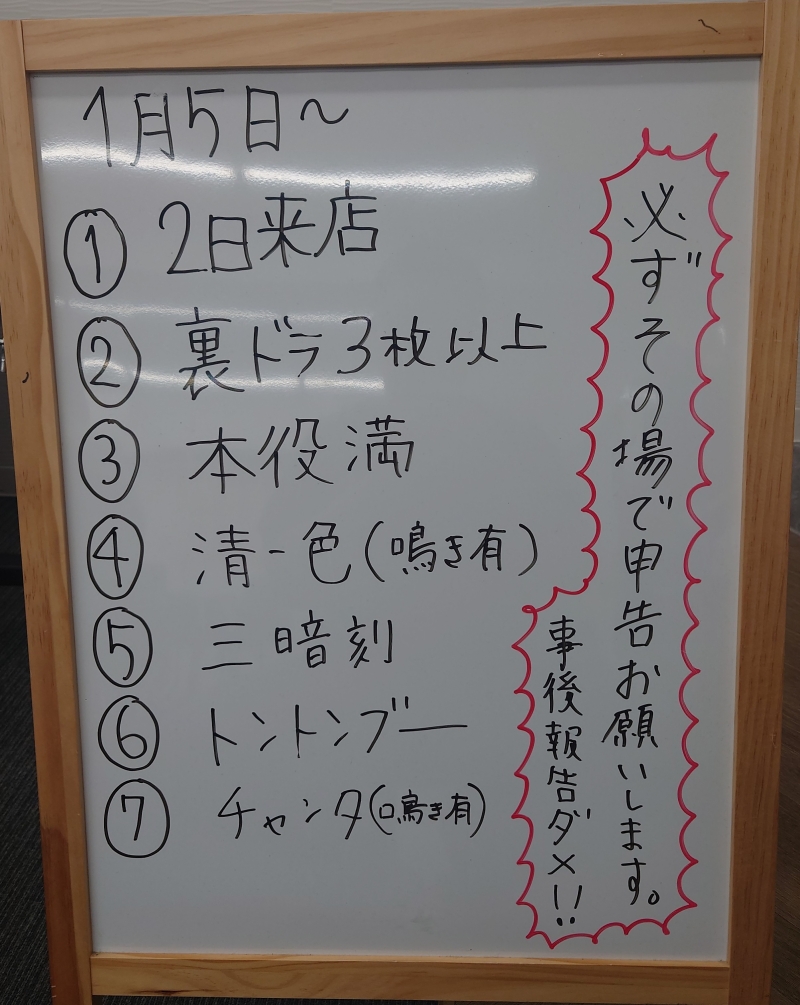 1月5日～
① 2日来店
② 裏ドラ3枚以上
③ 本役満
④ 清一色(鳴き有)
⑤ 三暗刻
⑥ トントンブー
⑦ チャンタ(鳴き有)
必ずその場で申告お願いします。
事後報告ダメ!!